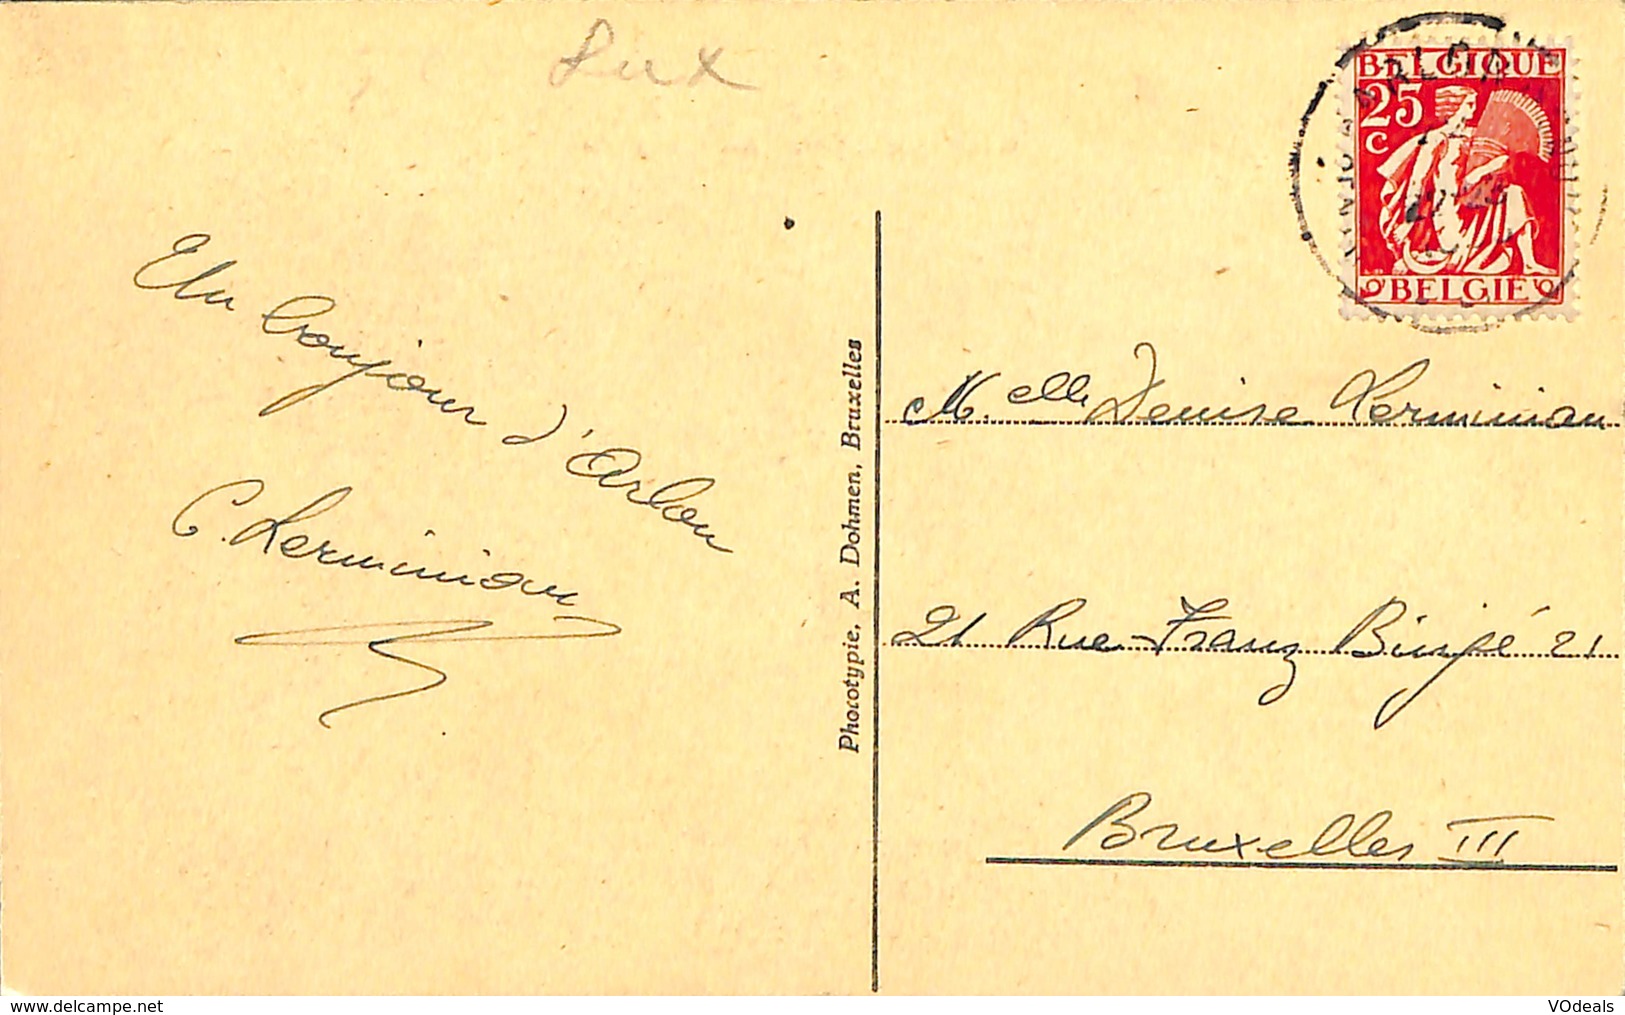 Lux
BELGIQUE
25
c
BELGIE
Un bonjour d'Arlon
C. Lerminiaux
Phototypie, A. Dohmen, Bruxelles
Melle Denise Lerminiau
21 Rue Franz Binjé 21
Bruxelles III
www.delcampe.net
VOdeals